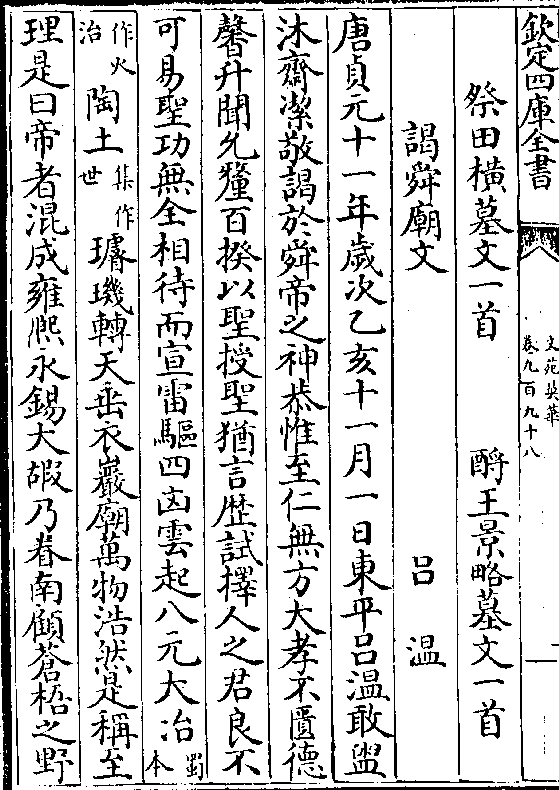 欽定四庫全書
文苑英華
卷九百九十八
祭田橫墓文一首　酹王景略墓文一首
謁舜廟文　呂溫
唐貞元十一年歲次乙亥十一月一日東平呂温敢盥
沐齋潔敬謁於舜帝之神恭惟至仁無方大孝不匱德
馨升聞允釐百揆以聖授聖猶言歴試擇人之君良不
可易聖功無全相待而宣雷驅四凶雲起八元大冶蜀本
作火治陶土集作世璿璣轉天垂衣巖廟萬物浩然是稱至
理是曰帝者混成雍熈永錫大嘏乃眷南顧蒼梧之野